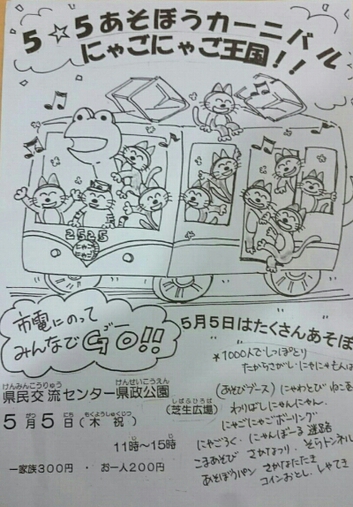 5☆5あそぼうカーニバル
にゃごにゃご王国!!
2525
にゃご
市電にのって
みんなでGO!!
ゴー
5月5日はたくさんあそぼ
けんみんこうりゅう けんせいこうえん
県民交流センター県政公園
しばふひろば
(芝生広場)
がつ にち もくようしゅくじつ
5月5日(木 祝)
11時〜15時
一家族300円・お一人200円
*1000人でしっぽとり
たからさがし
(あそびブース) にゃわとび
わりばしにゃんにゃん
にゃごにゃごボーリング
にゃごろく にゃんぼーる 迷路
こまあそび さかなつり そらトンネル
あそぼうパン さかなたたき
コインおとし しゃてき